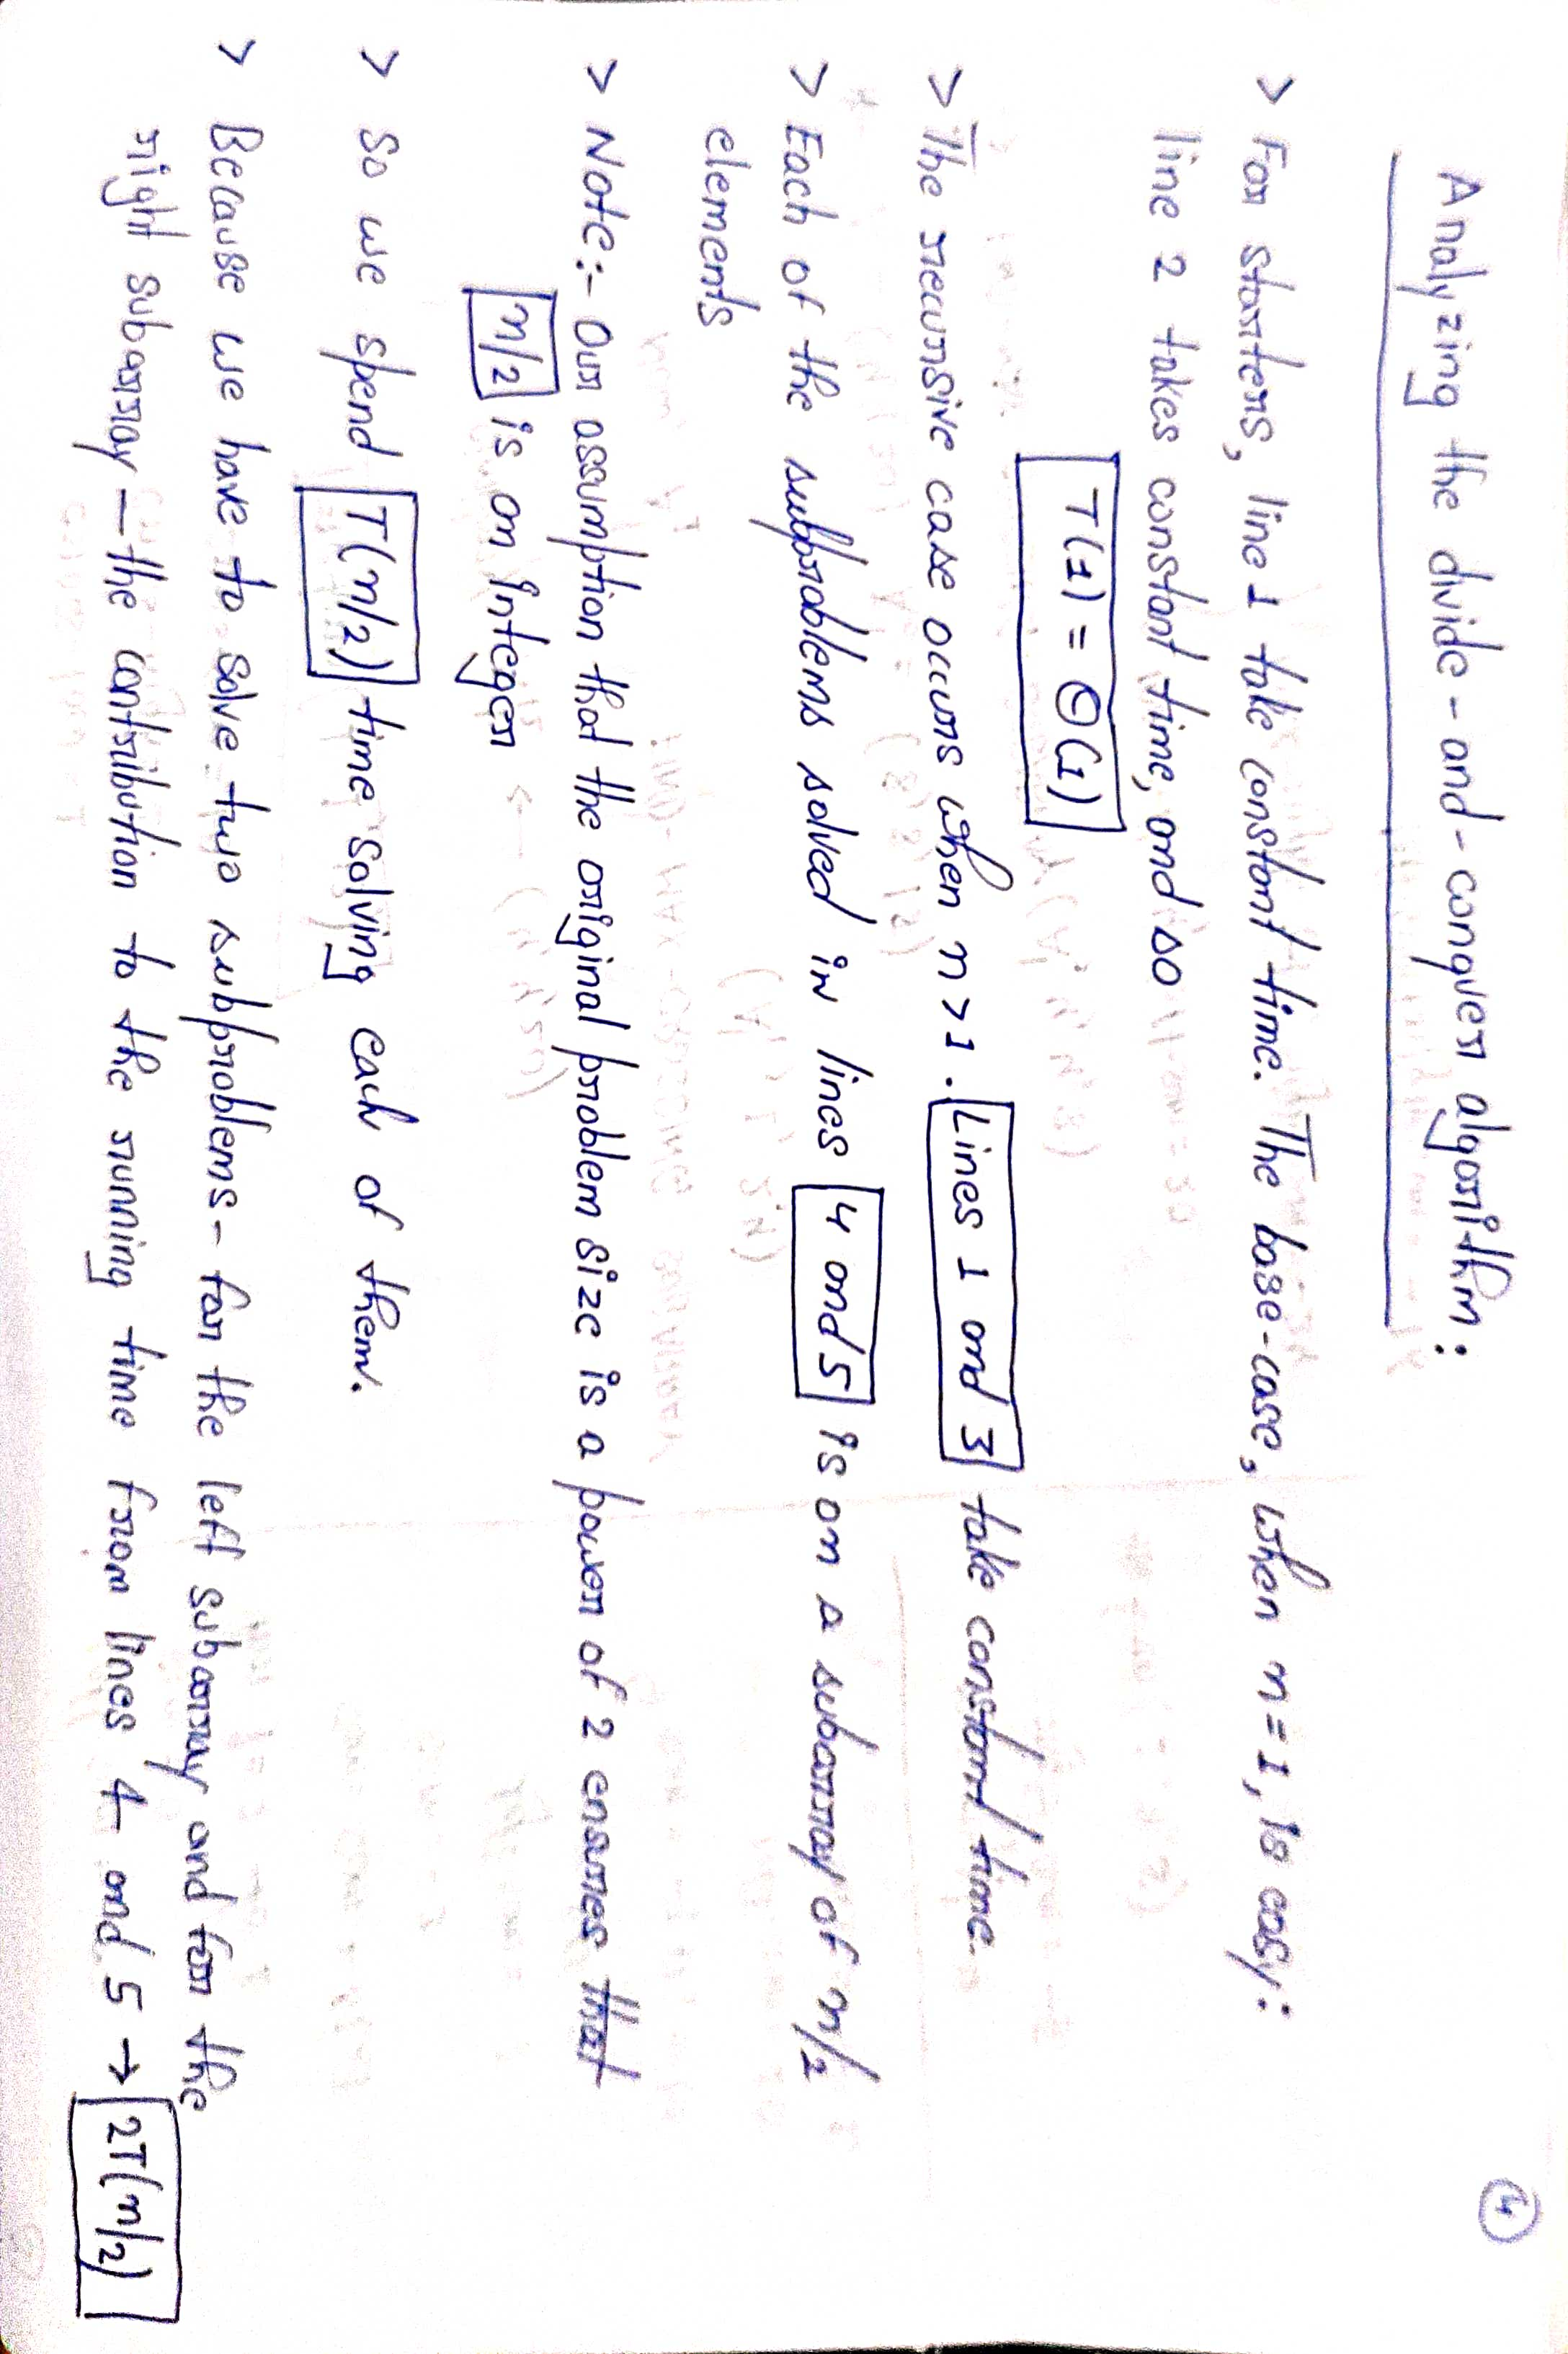 4
Analyzing the divide-and-conquer algorithm:
> For starters, line 1 take constant time. The base-case, when n=1, is easy:
line 2 takes constant time, and so
T(1) = Θ(1)
> The recursive case occurs when n>1. Lines 1 and 3 take constant time.
> Each of the subproblems solved in lines 4 and 5 is on a subarray of n/2
elements
> Note:- Our assumption that the original problem size is a power of 2 ensures that
n/2 is an integer
> So we spend T(n/2) time solving each of them.
> Because we have to solve two subproblems- for the left subarray and for the
right subarray — the contribution to the running time from lines 4 and 5 → 2T(n/2)